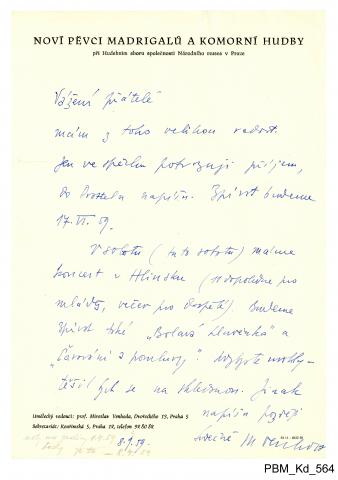 NOVÍ PĚVCI MADRIGALŮ A KOMORNÍ HUDBY
při Hudebním sboru společnosti Národního musea v Praze
Vážení přátelé
mám z toho velikou radost.
Jen ve spěchu potvrzuji příjem,
do napíšu. Zpívat budeme
17. VI. 59.
V sobotu (tuto sobotu) máme
koncert v Hlinsku (dopoledne pro
mládež, večer pro dospělé). Budeme
zpívat také „Bolavá a
Čarování s ".
těšil bych se na shledanou. Jinak
napíšu později
Srdečně
Umělecký vedoucí: prof. Miroslav Venhoda, Dvořeckého 19, Praha 5
Sekretariát: Kouřimská 5, Praha 12, telefon
8.4.59.
PBM_Kd_564